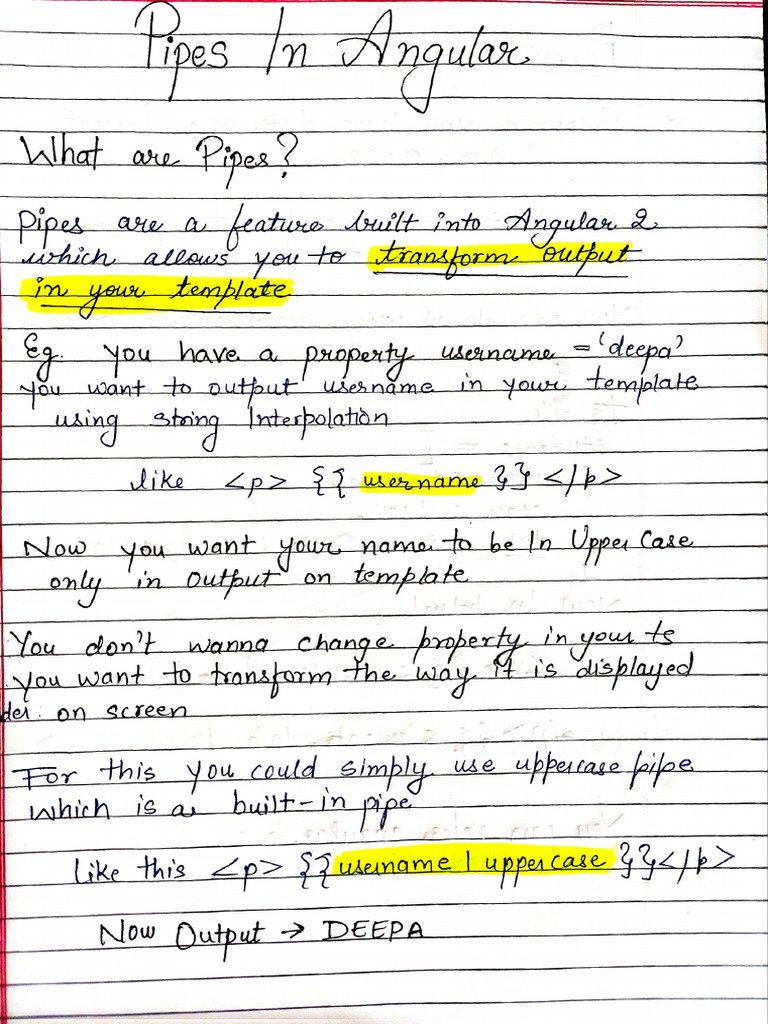 Pipes In Angular
What are Pipes?
Pipes are a feature built into Angular 2
which allows you to transform output
in your template
Eg. you have a property username = 'deepa'
you want to output username in your template
using string Interpolation
like <p> {{ username }} </p>
Now you want your name to be In Upper Case
only in output on template
You don't wanna change property in your ts
you want to transform the way it is displayed
on screen
For this you could simply use uppercase pipe
which is a built-in pipe
Like this <p> {{ username | uppercase }} </p>
Now Output → DEEPA